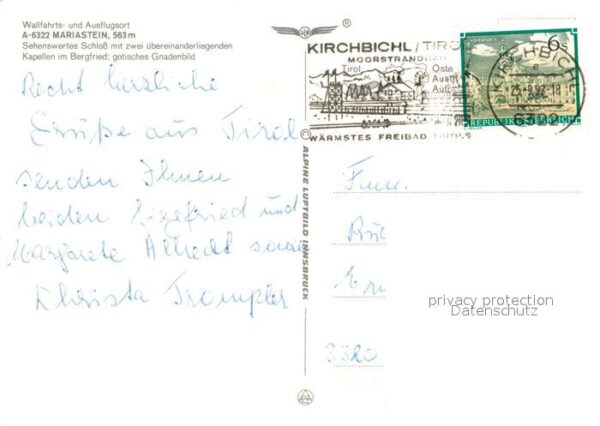 Wallfahrts- und Ausflugsort
A-6322 MARIASTEIN, 563 m
Sehenswertes Schloß mit zwei übereinanderliegenden
Kapellen im Bergfried; gotisches Gnadenbild
Recht herzliche
Grüße aus Tirol
senden Ihnen
beiden Siegfried und
Margarete Albrecht sowie
Christa Trompler
ALPINE LUFTBILD INNSBRUCK
KIRCHBICHL/TIROL
MOORSTRANDBAD
Tirol
WÄRMSTES FREIBAD TIROLS
KIRCHBICHL
6s
REPUBLIK ÖSTERREICH
Fam.
3320
privacy protection
Datenschutz